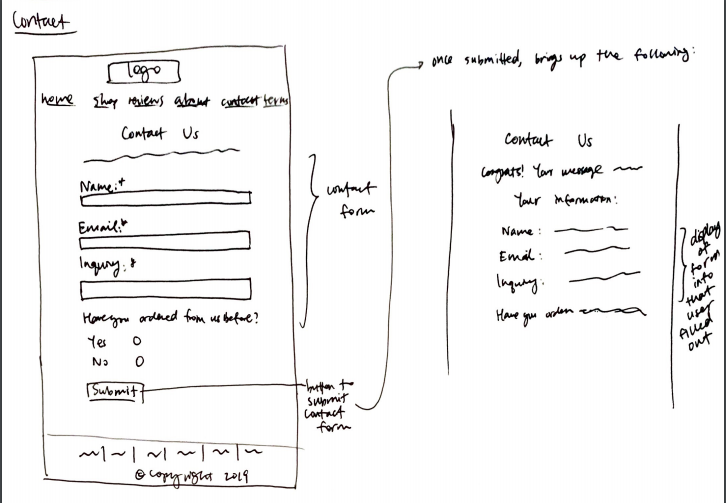 Contact
logo
home shop reviews about contact terms
Contact Us
Name:*
Email:*
Inquiry:*
Have you ordered from us before?
Yes
No
Submit
© copyright 2019
contact
form
button to
submit
contact
form
once submitted, brings up the following:
Contact Us
Congrats! Your message
Your information:
Name:
Email:
Inquiry:
Have you orden
display
of
form
into
that
user
filled
out